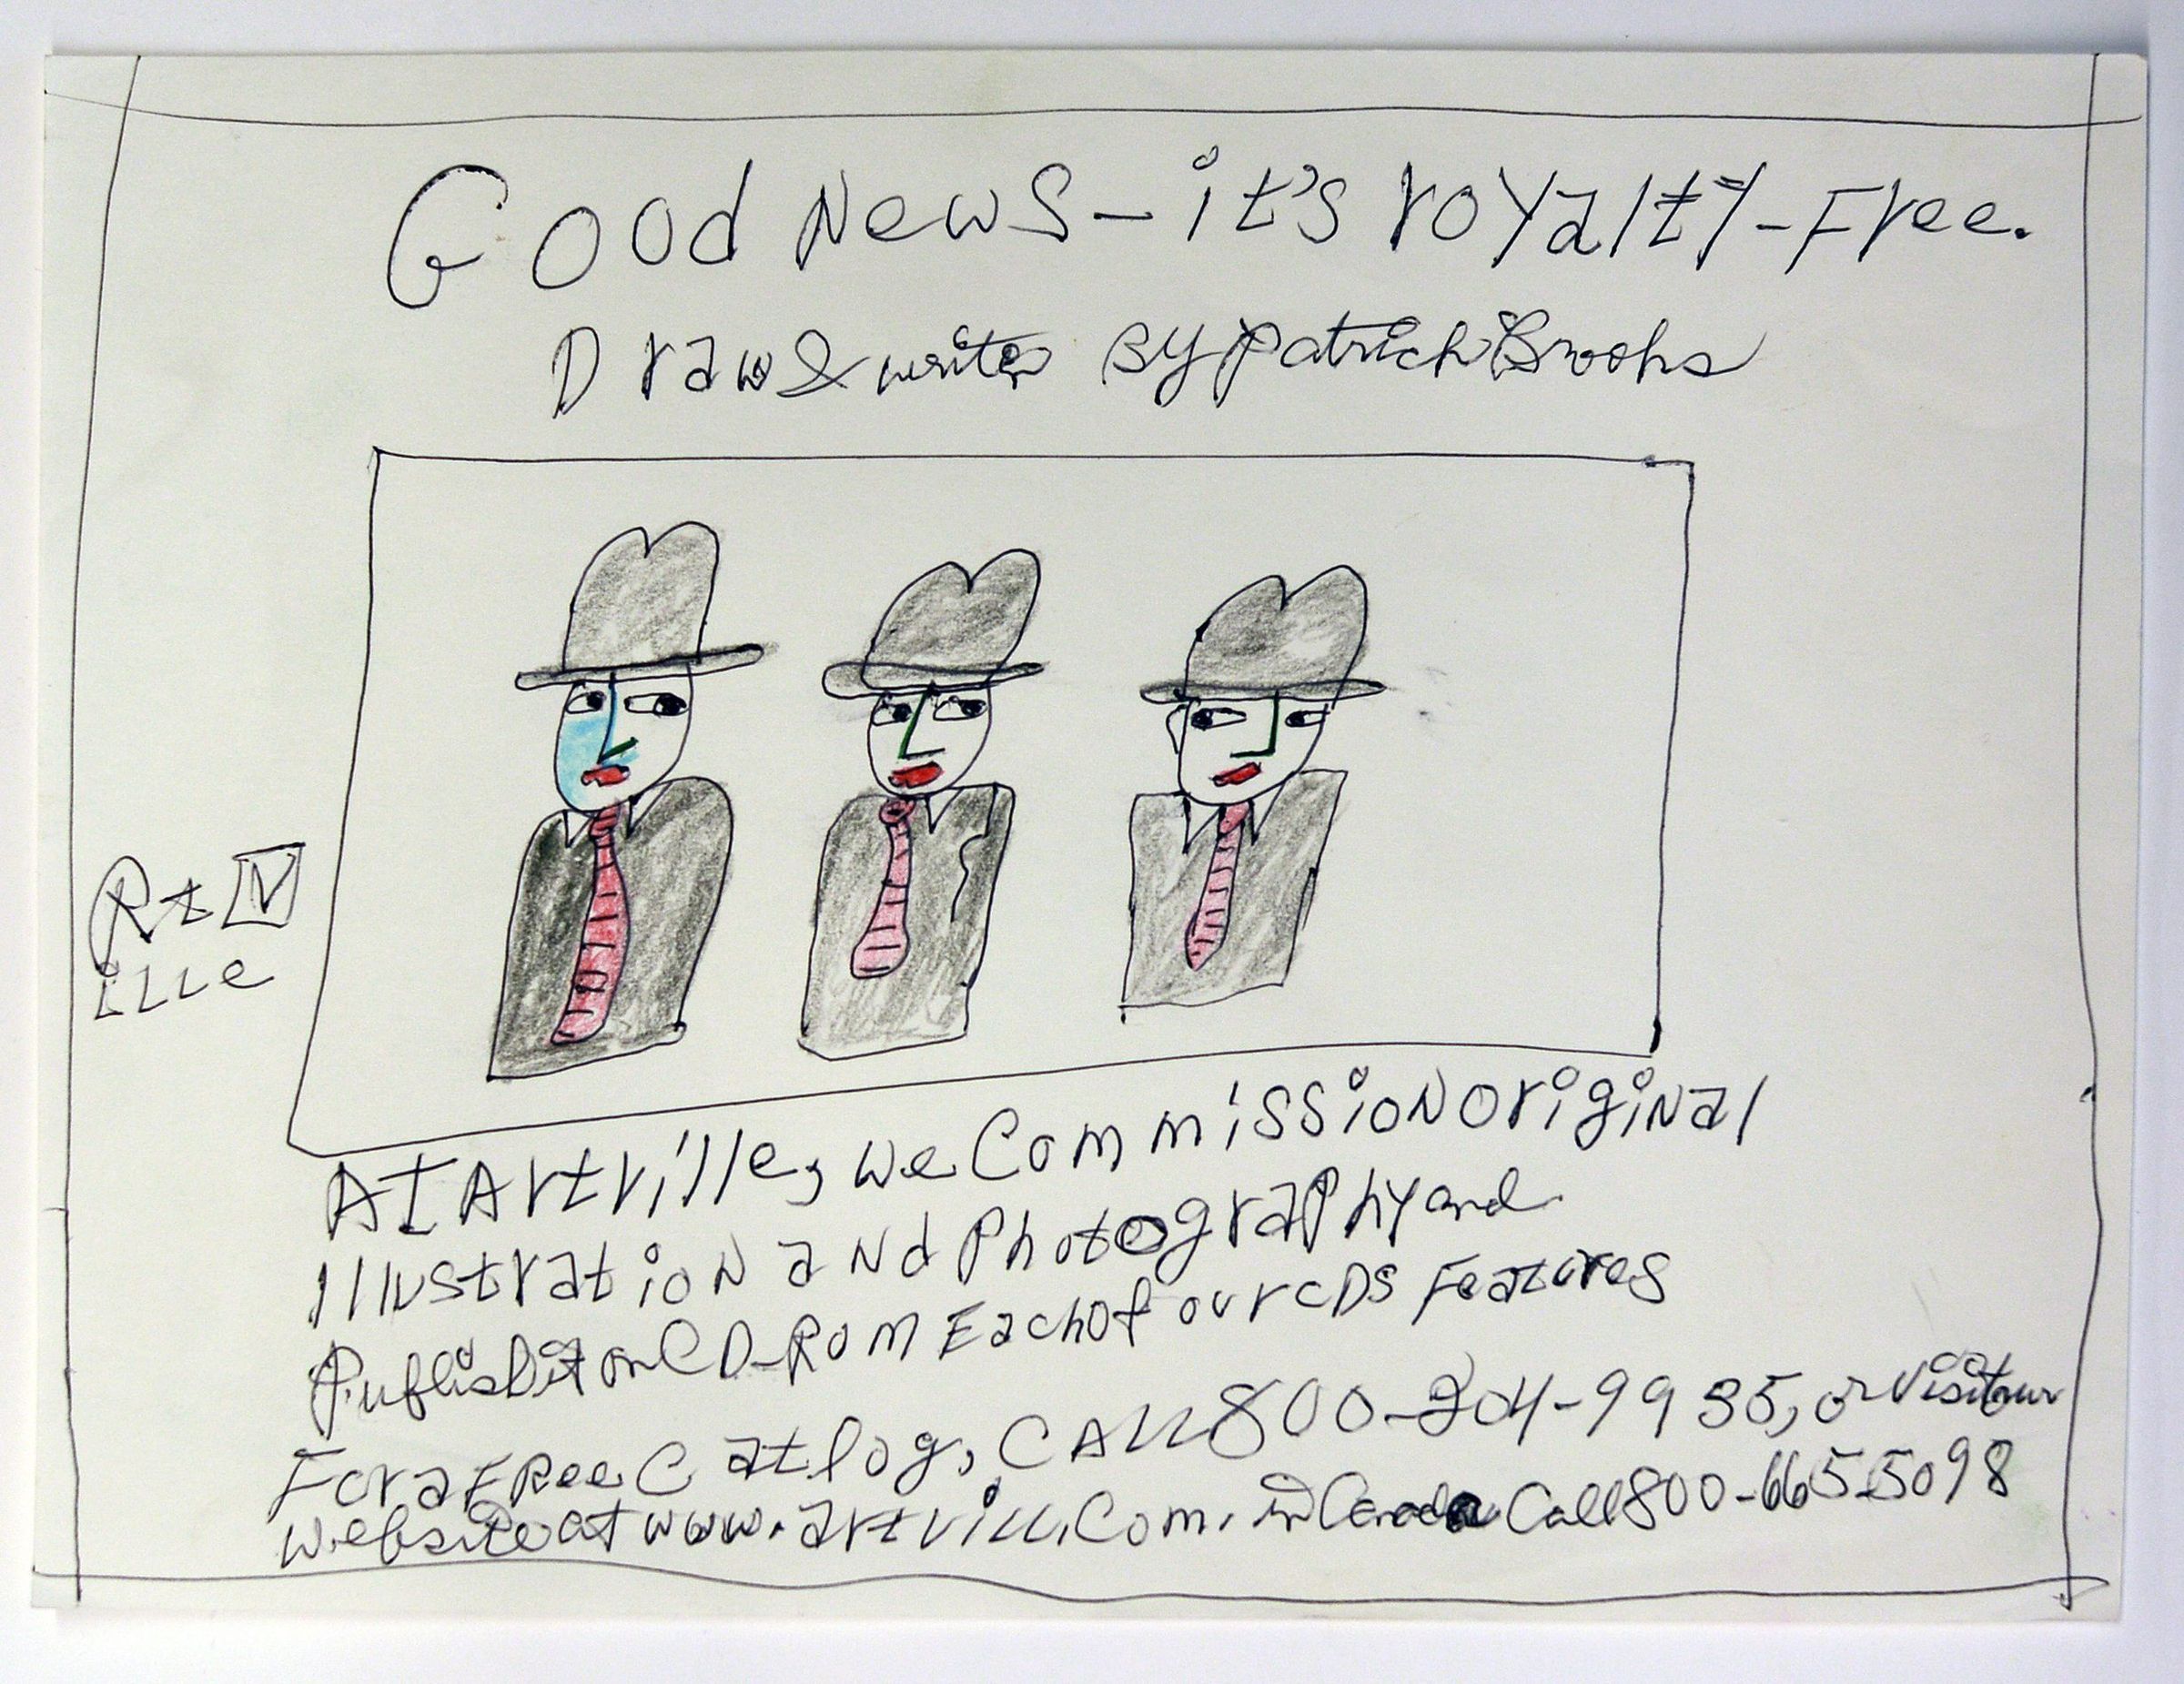 Good News - it's royalty-Free.
Draw & write By Patrick Brooks
Rt V
ille
At Artville, we Commission original
Illustration and Photography and
Publish it on CD-ROM Each of our CDS Features
For a Free Catlog, CAll 800-204-9935, or visit our
website at www.artvill.Com. in Canada Call 800-665-5098